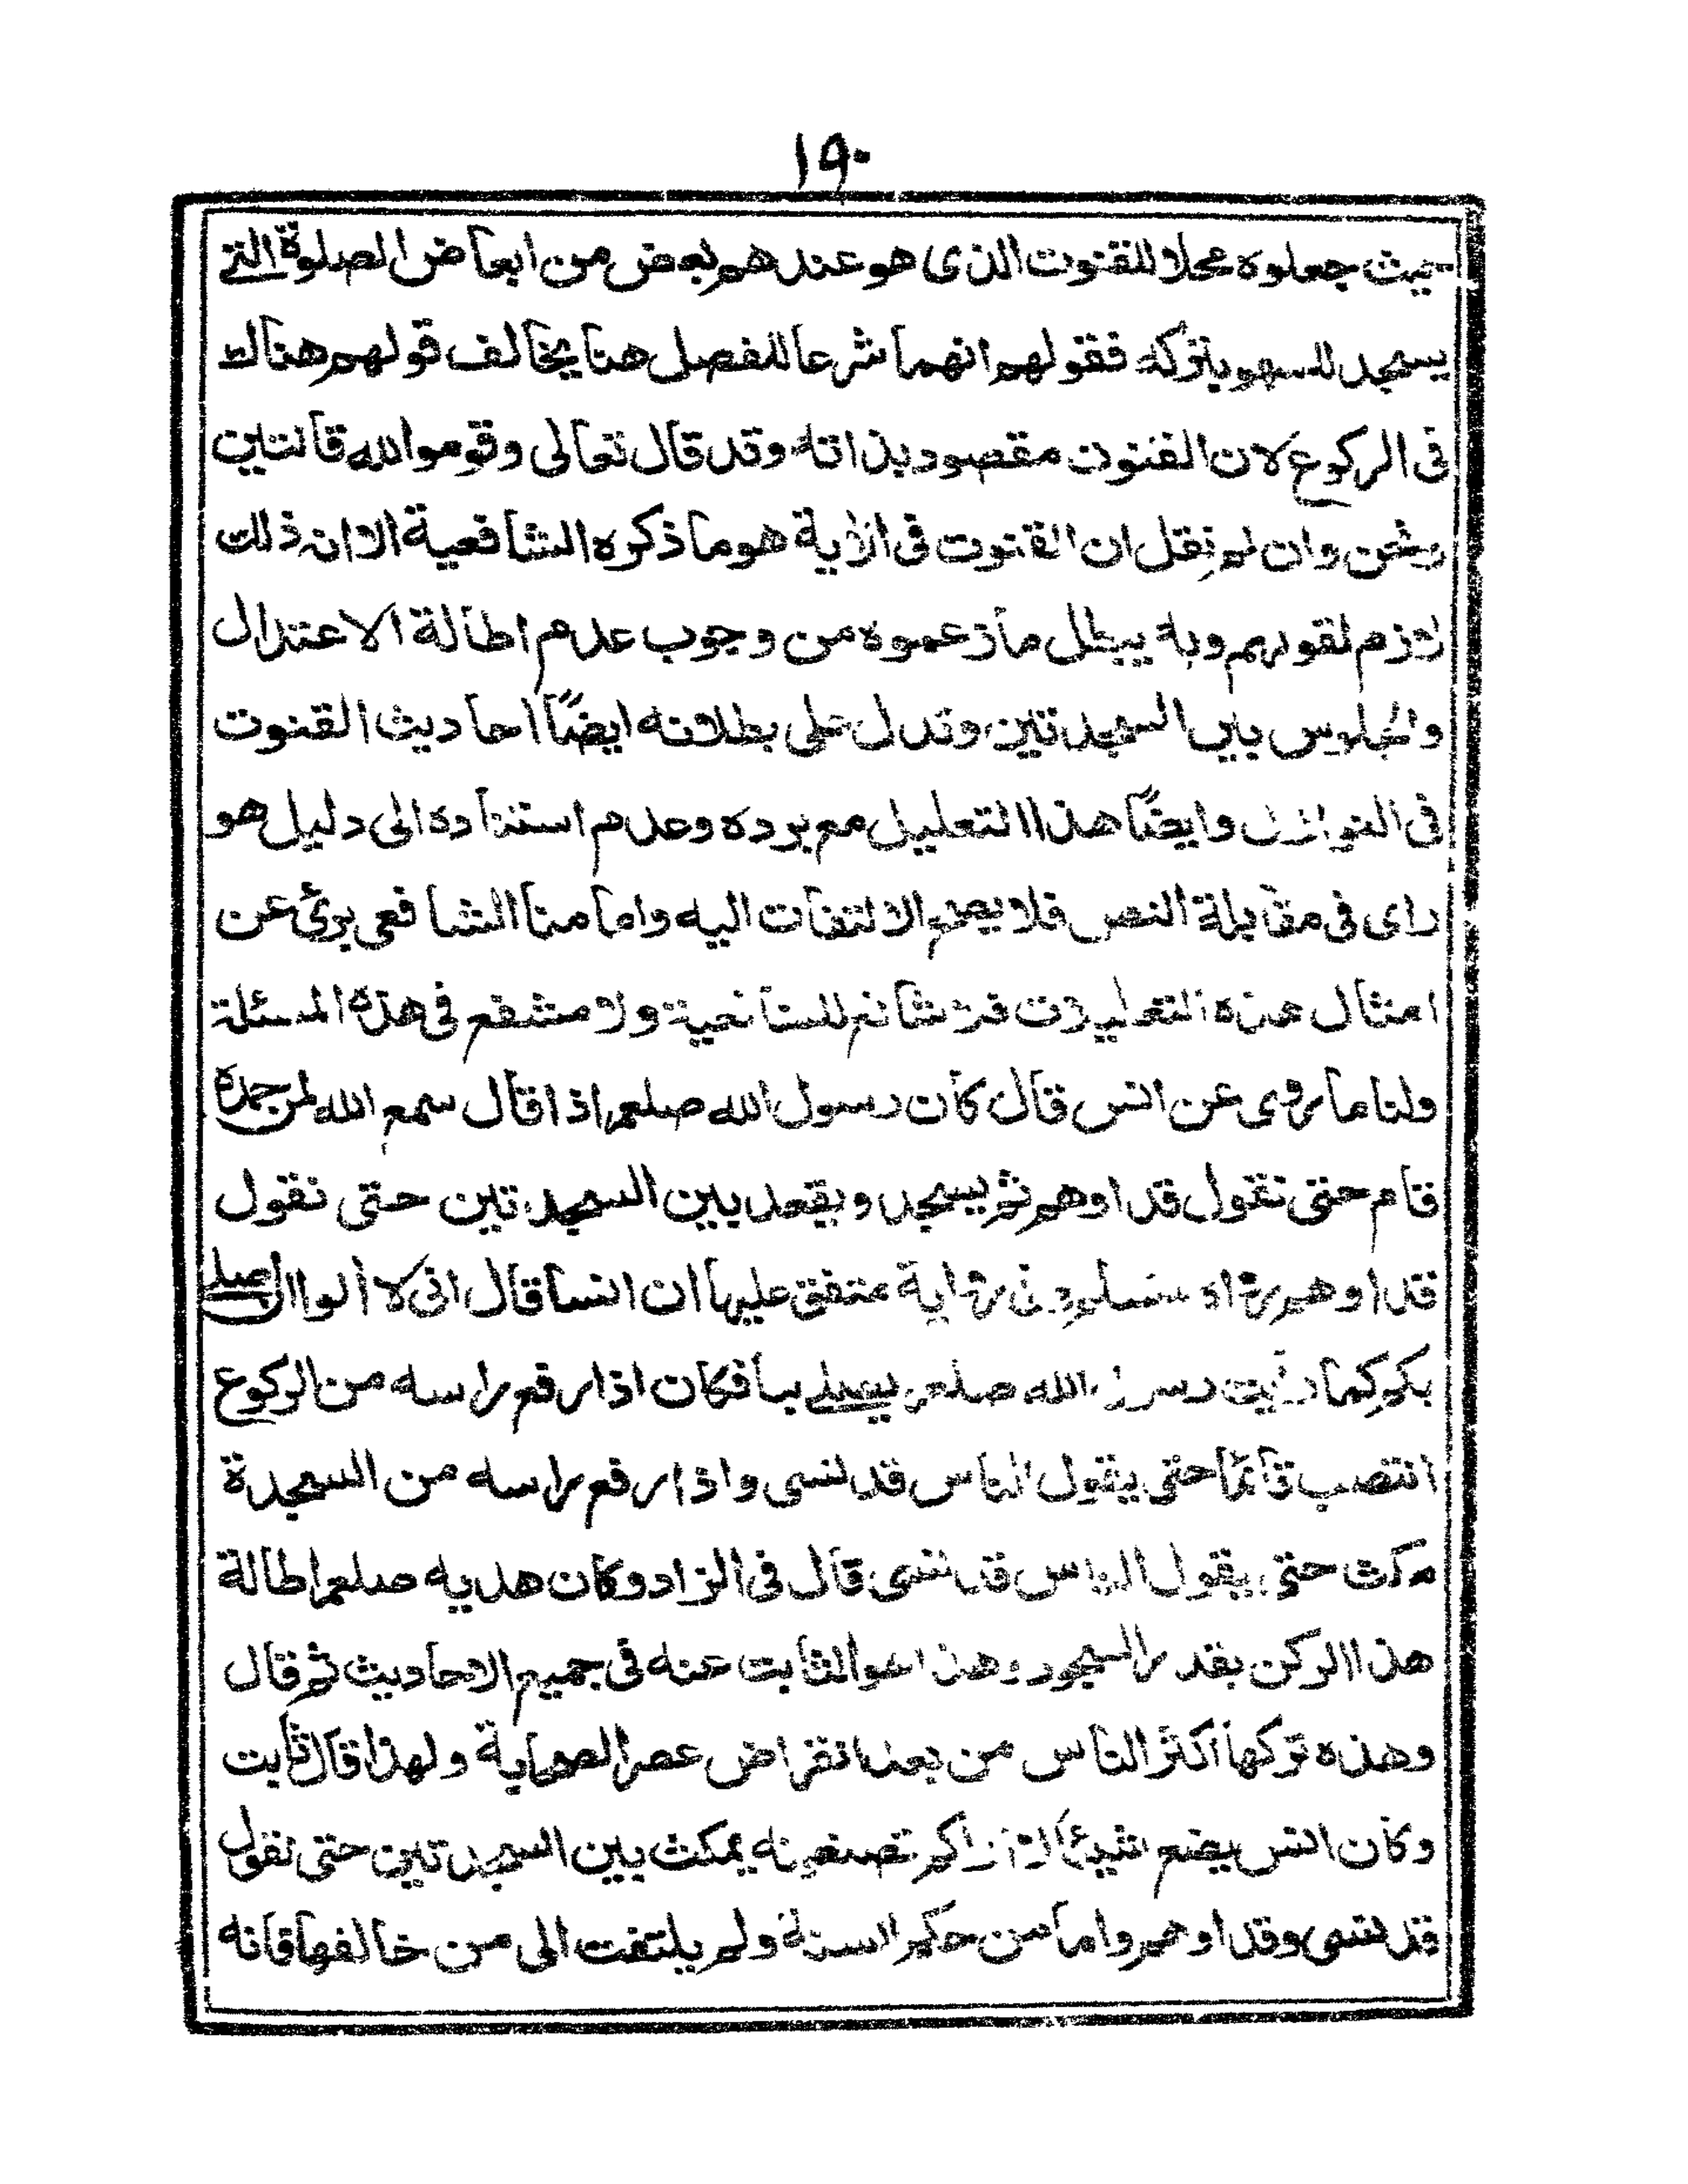 ١٩٠
حيث جعلوه محلا للقنوت الذى هو عندهم بعض من ابعاض الصلوة التى
يسجد للسهو بتركه فقولهم انهما شرعا للفصل هنا يخالف قولهم هنالك
فى الركوع لان القنوت مقصود بذاته وقد قال تعالى وقوموا لله قانتين
ونحن وان لم نقل ان القنوت فى الأية هو ما ذكره الشافعية الا انه ذلك
لازم لقولهم وبه يبطل ما زعموه من وجوب عدم اطالة الاعتدال
والجلوس بين السجدتين وتدل على بطلانه ايضًا احاديث القنوت
فى النوازل وايضًا هذا التعليل مع برده وعدم استناده الى دليل هو
راى فى مقابلة النص فلا يصح الالتفات اليه وامامنا الشافعى برئ عن
امثال هذه التعليلات ولا متشفع فى هذه المسئلة
ولنا ما روى عن انس قال كان رسول الله صلعم اذا قال سمع الله لمن حمده
قام حتى نقول قد اوهم ثم يسجد ويقعد بين السجدتين حتى نقول
قد اوهم رواه مسلم وفى رواية متفق عليها ان انسا قال انى لا ألوا ان اصلى
بكم كما رأيت رسول الله صلعم يصلى بنا فكان اذا رفع راسه من الركوع
انتصب قائما حتى يقول الناس قد نسى واذا رفع راسه من السجدة
مكث حتى يقول الناس قد نسى قال فى الزاد وكان هديه صلعم اطالة
هذا الركن بقدر السجود وهذا هو الثابت عنه فى جميع الاحاديث ثم قال
وهذه تركها أكثر الناس من بعد انقراض عصر الصحابة ولهذا قال ثابت
وكان انس يضع شيئا لا اراكم تصنعونه يمكث بين السجدتين حتى نقول
قد نسى وقد اوهم واما من حكم السنة ولم يلتفت الى من خالفها فانه